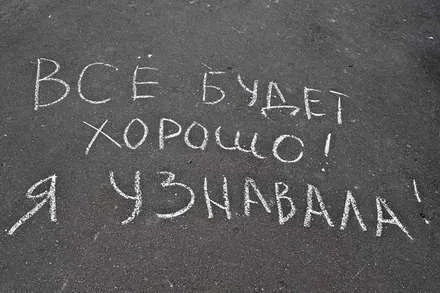 ВСЕ БУДЕТ
ХОРОШО!
Я УЗНАВАЛА!